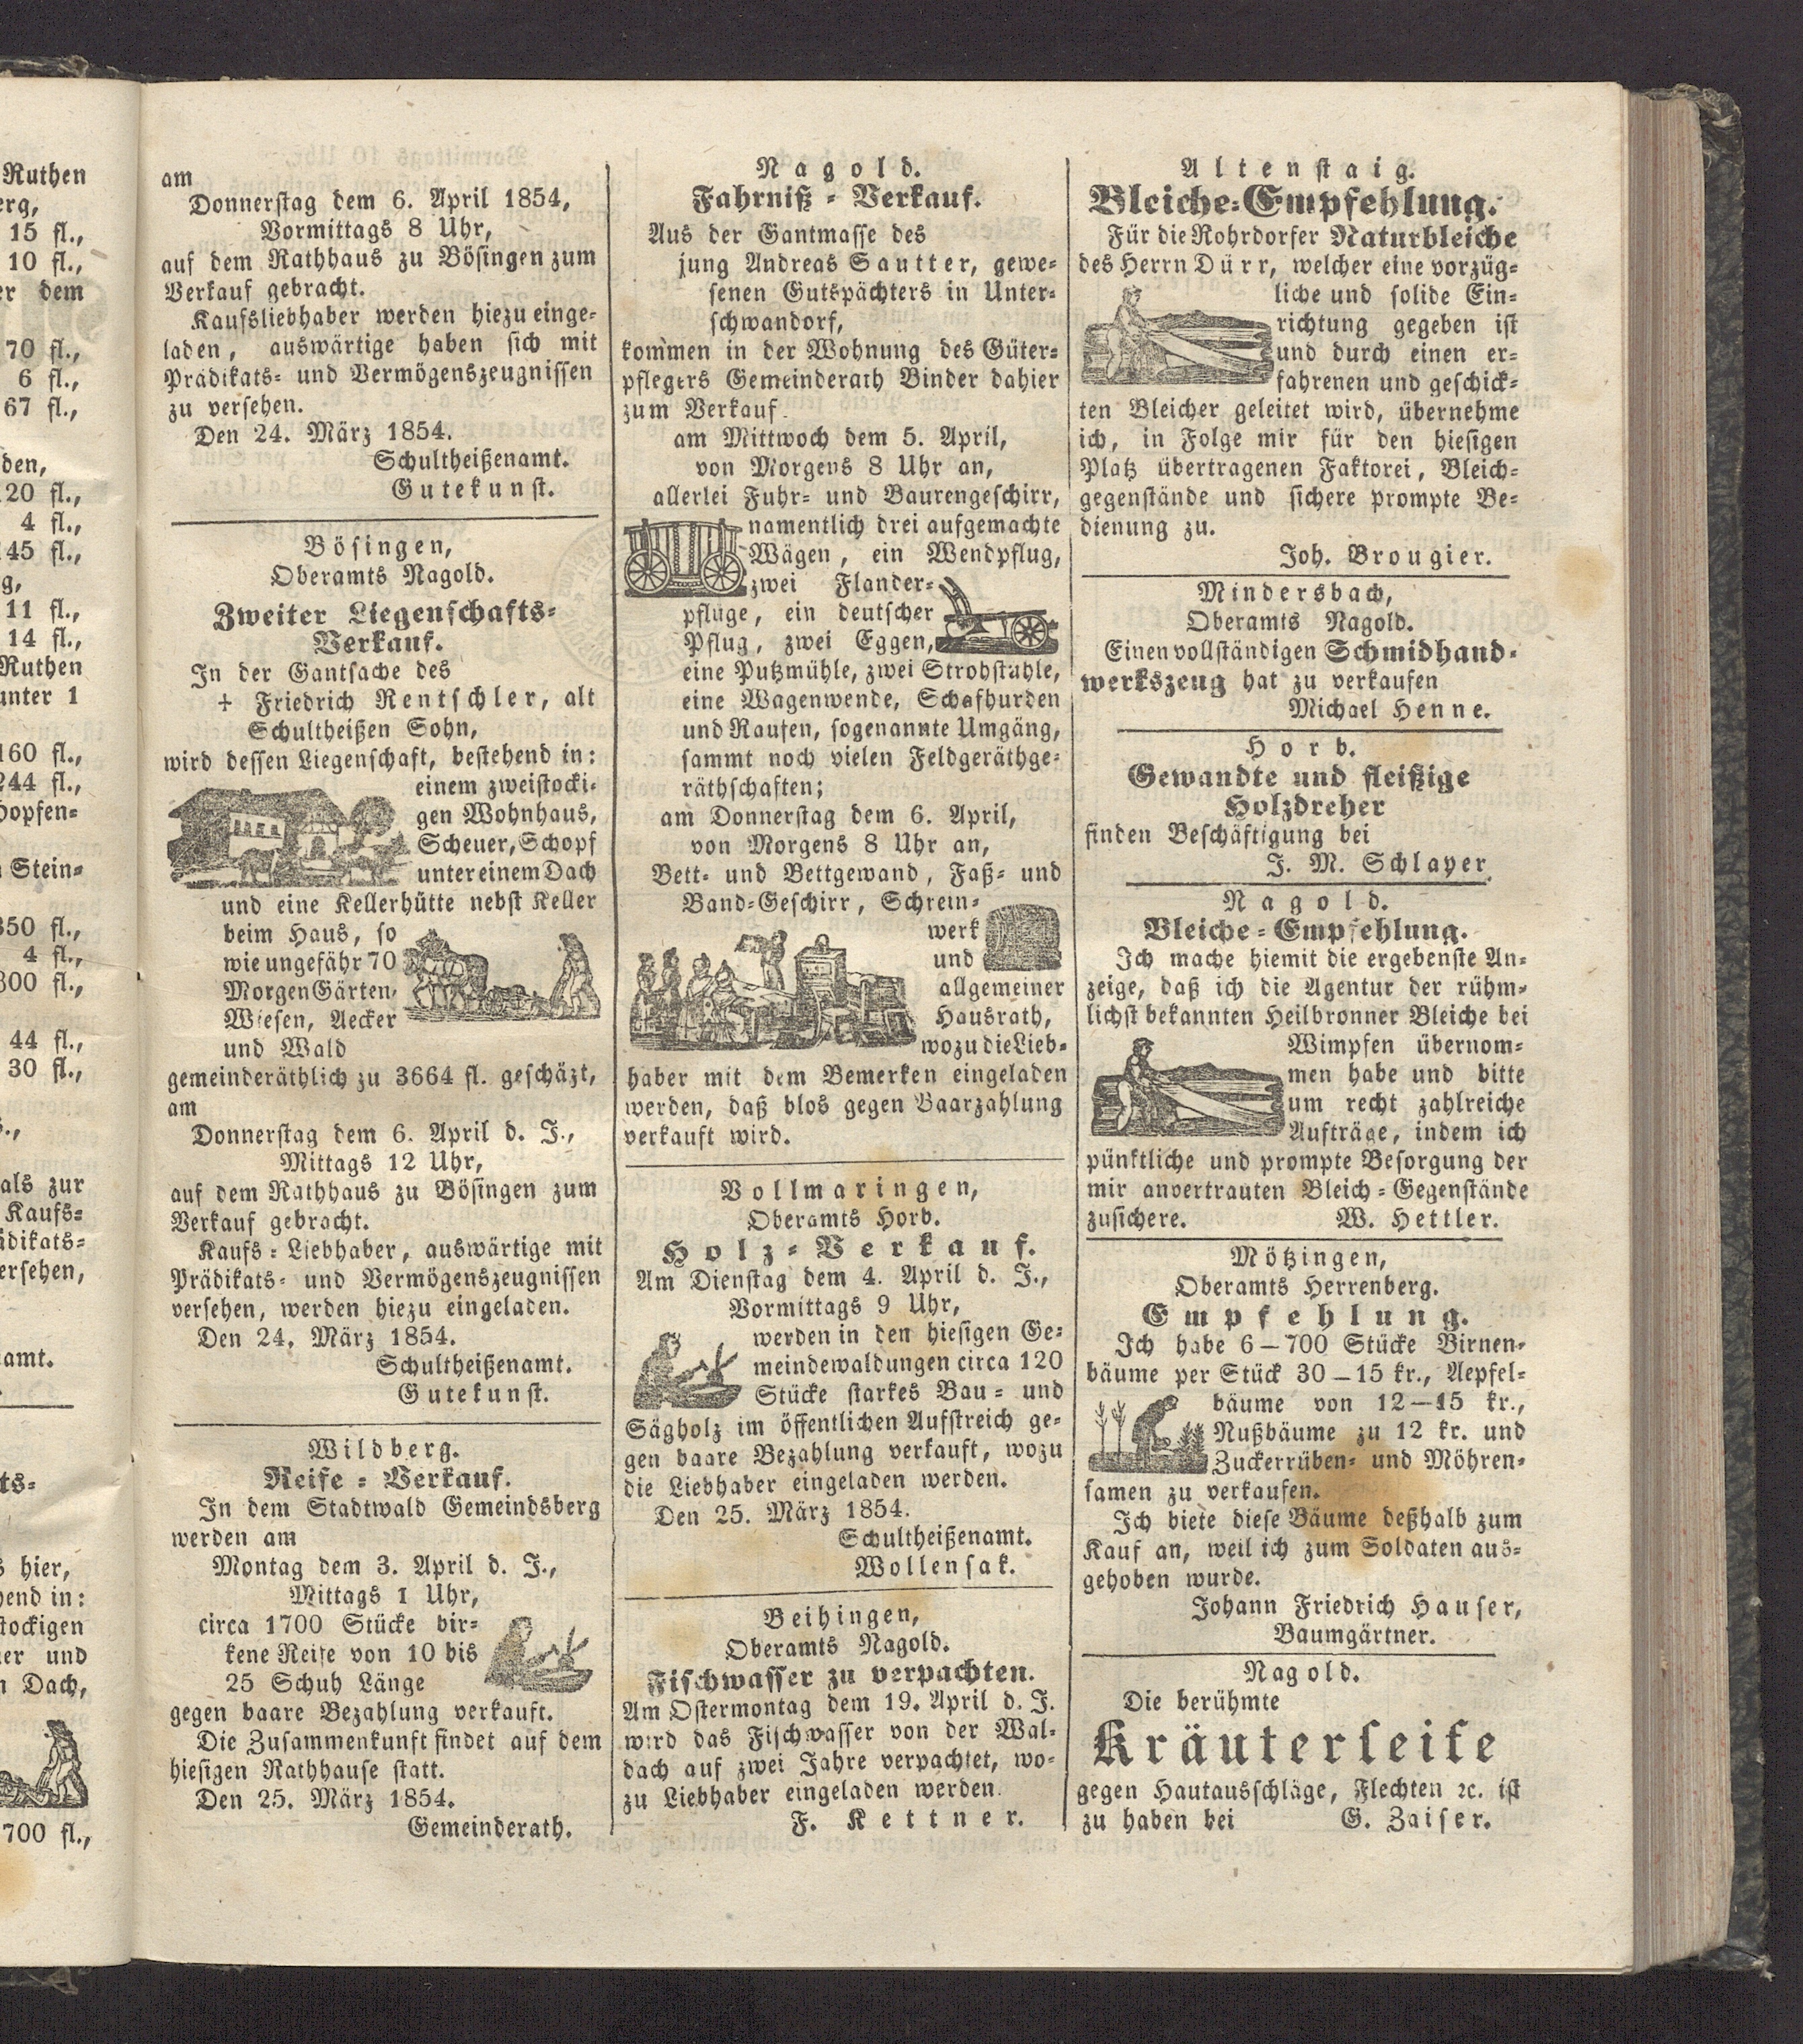 Ruthen
erg,
15 fl.,
10 fl.,
er dem
70 fl.,
6 fl.,
67 fl.,
den,
120 fl.,
4 fl.,
145 fl.,
g,
11 fl.,
14 fl.,
Ruthen
unter 1
160 fl.,
244 fl.,
Hopfen-
Stein-
350 fl.,
4 fl.,
300 fl.,
44 fl.,
30 fl.,
als zur
Kaufs-
ädikats-
ersehen,
amt.
ts-
s hier,
hend in:
stockigen
er und
n Dach,
700 fl.,
am
Donnerstag dem 6. April 1854,
Vormittags 8 Uhr,
auf dem Rathhaus zu Bösingen zum
Verkauf gebracht.
Kaufsliebhaber werden hiezu einge-
laden, auswärtige haben sich mit
Prädikats- und Vermögenszeugnissen
zu versehen.
Den 24. März 1854.
Schultheißenamt.
Gutekunst.
Bösingen,
Oberamts Nagold.
Zweiter Liegenschafts-
Verkauf.
In der Gantsache des
+ Friedrich Rentschler, alt
Schultheißen Sohn,
wird dessen Liegenschaft, bestehend in:
einem zweistocki-
gen Wohnhaus,
Scheuer, Schopf
unter einem Dach
und eine Kellerhütte nebst Keller
beim Haus, so
wie ungefähr 70
Morgen Gärten,
Wiesen, Aecker
und Wald
gemeinderäthlich zu 3664 fl. geschäzt,
am
Donnerstag dem 6. April d. J.,
Mittags 12 Uhr,
auf dem Rathhaus zu Bösingen zum
Verkauf gebracht.
Kaufs-Liebhaber, auswärtige mit
Prädikats- und Vermögenszeugnissen
versehen, werden hiezu eingeladen.
Den 24. März 1854.
Schultheißenamt.
Gutekunst.
Wildberg.
Reife-Verkauf.
In dem Stadtwald Gemeindsberg
werden am
Montag dem 3. April d. J.,
Mittags 1 Uhr,
circa 1700 Stücke bir-
kene Reife von 10 bis
25 Schuh Länge
gegen baare Bezahlung verkauft.
Die Zusammenkunft findet auf dem
hiesigen Rathhause statt.
Den 25. März 1854.
Gemeinderath.
Nagold.
Fahrniß-Verkauf.
Aus der Gantmasse des
jung Andreas Sautter, gewe-
senen Gutspächters in Unter-
schwandorf,
kommen in der Wohnung des Güter-
pflegers Gemeinderath Binder dahier
zum Verkauf
am Mittwoch dem 5. April,
von Morgens 8 Uhr an,
allerlei Fuhr- und Baurengeschirr,
namentlich drei aufgemachte
Wägen, ein Wendpflug,
zwei Flander-
pfluge, ein deutscher
Pflug, zwei Eggen,
eine Putzmühle, zwei Strohstühle,
eine Wagenwende, Schafhurden
und Raufen, sogenannte Umgäng,
sammt noch vielen Feldgeräthge-
räthschaften;
am Donnerstag dem 6. April,
von Morgens 8 Uhr an,
Bett- und Bettgewand, Faß- und
Band-Geschirr, Schrein-
werk
und
allgemeiner
Hausrath,
wozu die Lieb-
haber mit dem Bemerken eingeladen
werden, daß blos gegen Baarzahlung
verkauft wird.
Vollmaringen,
Oberamts Horb.
Holz-Verkauf.
Am Dienstag dem 4. April d. J.,
Vormittags 9 Uhr,
werden in den hiesigen Ge-
meindewaldungen circa 120
Stücke starkes Bau- und
Sägholz im öffentlichen Aufstreich ge-
gen baare Bezahlung verkauft, wozu
die Liebhaber eingeladen werden.
Den 25. März 1854.
Schultheißenamt.
Wollensak.
Beihingen,
Oberamts Nagold.
Fischwasser zu verpachten.
Am Ostermontag dem 19. April d. J.
wird das Fischwasser von der Wal-
dach auf zwei Jahre verpachtet, wo-
zu Liebhaber eingeladen werden.
F. Kettner.
Altenstaig.
Bleiche-Empfehlung.
Für die Rohrdorfer Naturbleiche
des Herrn Dürr, welcher eine vorzüg-
liche und solide Ein-
richtung gegeben ist
und durch einen er-
fahrenen und geschick-
ten Bleicher geleitet wird, übernehme
ich, in Folge mir für den hiesigen
Platz übertragenen Faktorei, Bleich-
gegenstände und sichere prompte Be-
dienung zu.
Joh. Brougier.
Mindersbach,
Oberamts Nagold.
Einen vollständigen Schmidhand-
werkszeug hat zu verkaufen
Michael Henne.
Horb.
Gewandte und fleißige
Holzdreher
finden Beschäftigung bei
J. M. Schlayer.
Nagold.
Bleiche-Empfehlung.
Ich mache hiemit die ergebenste An-
zeige, daß ich die Agentur der rühm-
lichst bekannten Heilbronner Bleiche bei
Wimpfen übernom-
men habe und bitte
um recht zahlreiche
Aufträge, indem ich
pünktliche und prompte Besorgung der
mir anvertrauten Bleich-Gegenstände
zusichere. W. Hettler.
Mötzingen,
Oberamts Herrenberg.
Empfehlung.
Ich habe 6–700 Stücke Birnen-
bäume per Stück 30–15 kr., Aepfel-
bäume von 12–15 kr.,
Nußbäume zu 12 kr. und
Zuckerrüben- und Möhren-
samen zu verkaufen.
Ich biete diese Bäume deßhalb zum
Kauf an, weil ich zum Soldaten aus-
gehoben wurde.
Johann Friedrich Hauser,
Baumgärtner.
Nagold.
Die berühmte
Kräuterseife
gegen Hautausschläge, Flechten ꝛc. ist
zu haben bei G. Zaiser.